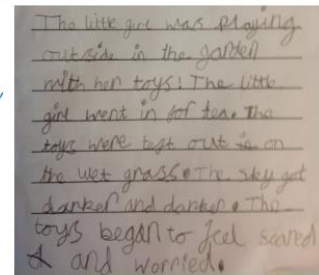 The little girl was playing
outside in the garden
with her toys. The little
girl went in for tea. The
toys were left out on
the wet grass. The sky got
darker and darker. The
toys began to feel scared
and worried.